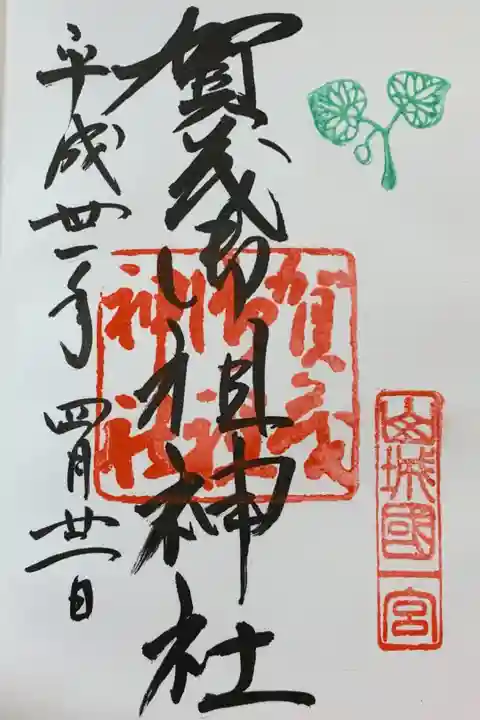 山城國一宮
賀茂御祖神社
賀茂
御祖
神社
平成卅一年 四月廿一日